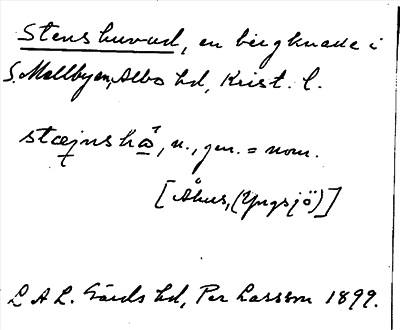 Stenshuvud, en bergknalle i
S. Mellbyen, Albo hd, Krist. l.
n., gen. = nom.
[Åhus, (Yngsjö)]
L A L. Gärds hd, Per Larsson 1899.